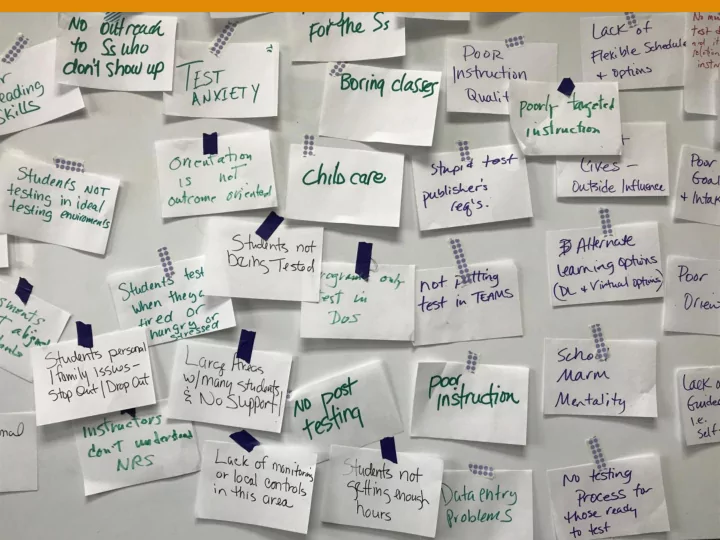 No outreach
to Ss who
don't show up
TEST
ANXIETY
For the Ss
Boring classes
POOR
Instruction
Qualit
poorly targeted
instruction
Lack of
Flexible Schedule
& options
eading
Skills
Students NOT
testing in ideal
testing enviroments
Orientation
is not
outcome oriented
Child care
Stupid test
publisher's
req's.
Lives –
Outside Influence
Poor
Goal
& Intak
Students not
being Tested
Students test
when they
tired or
hangry or
stressed
only
test in
DOS
not putting
test in TEAMS
Alternate
learning options
(DL & Virtual options)
Poor
Orien
Students personal
/family issues –
Stop Out/Drop Out
Large Areas
w/many students
& No Support!
No post
testing
poor
instruction
School
Marm
Mentality
Lack of
Guided
i.e.
self-
instructors
don't understand
NRS
Lack of monitoring
or local controls
in this area
Students not
getting enough
hours
Data entry
Problems
No testing
Process for
those ready
to test